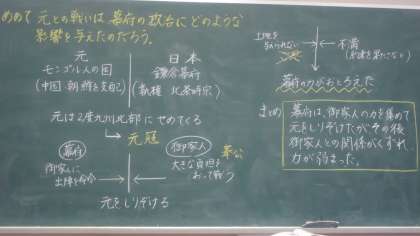 めあて 元との戦いは幕府の政治にどのような
影響を与えたのだろう。
元
モンゴル人の国
(中国・朝鮮を支配)
日本
鎌倉幕府
(執権 北条時宗)
元は2度九州北部にせめてくる
元寇
幕府
御家人に
出陣を命令
御家人
奉公
大きな負担を
おって戦う
元をしりぞける
土地を
与えられない
不満
幕府の力がおとろえた
まとめ
幕府は、御家人の力を集めて
元をしりぞけたがその後
御家人との関係がくずれ
力が弱まった。